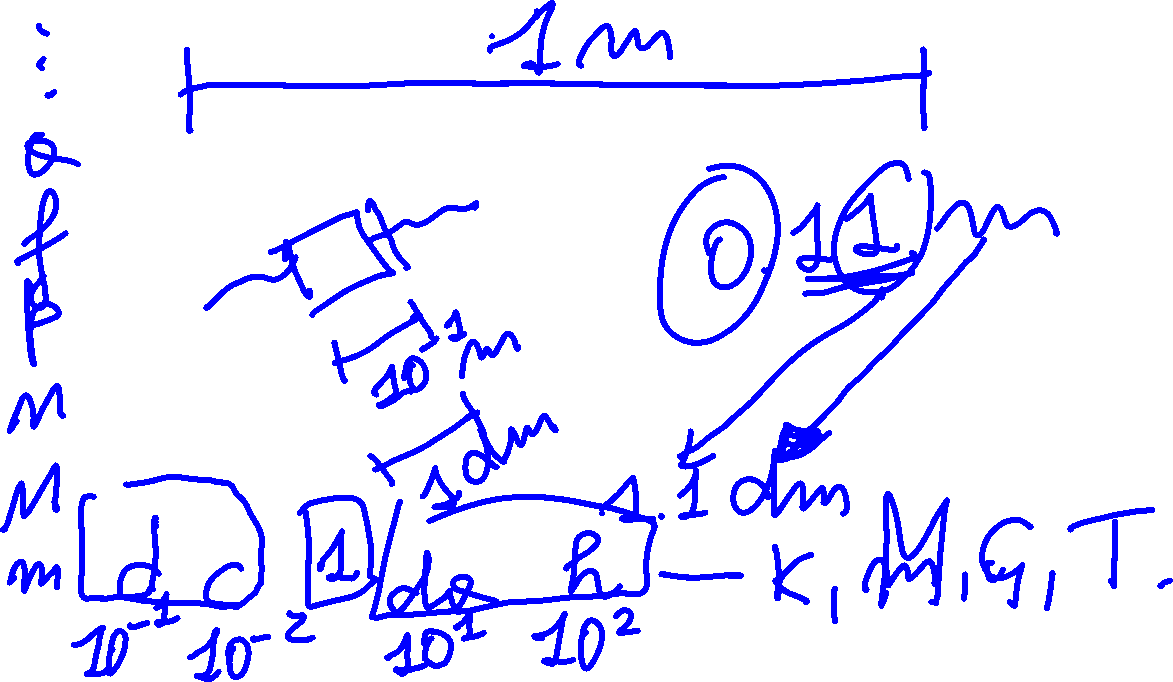 1 m
a
f
p
n
μ
m
0 1 1 m
10⁻¹ m
1 dm
1. 1 dm
d c 1 da h — K, M, G, T.
10⁻¹ 10⁻² 10¹ 10²